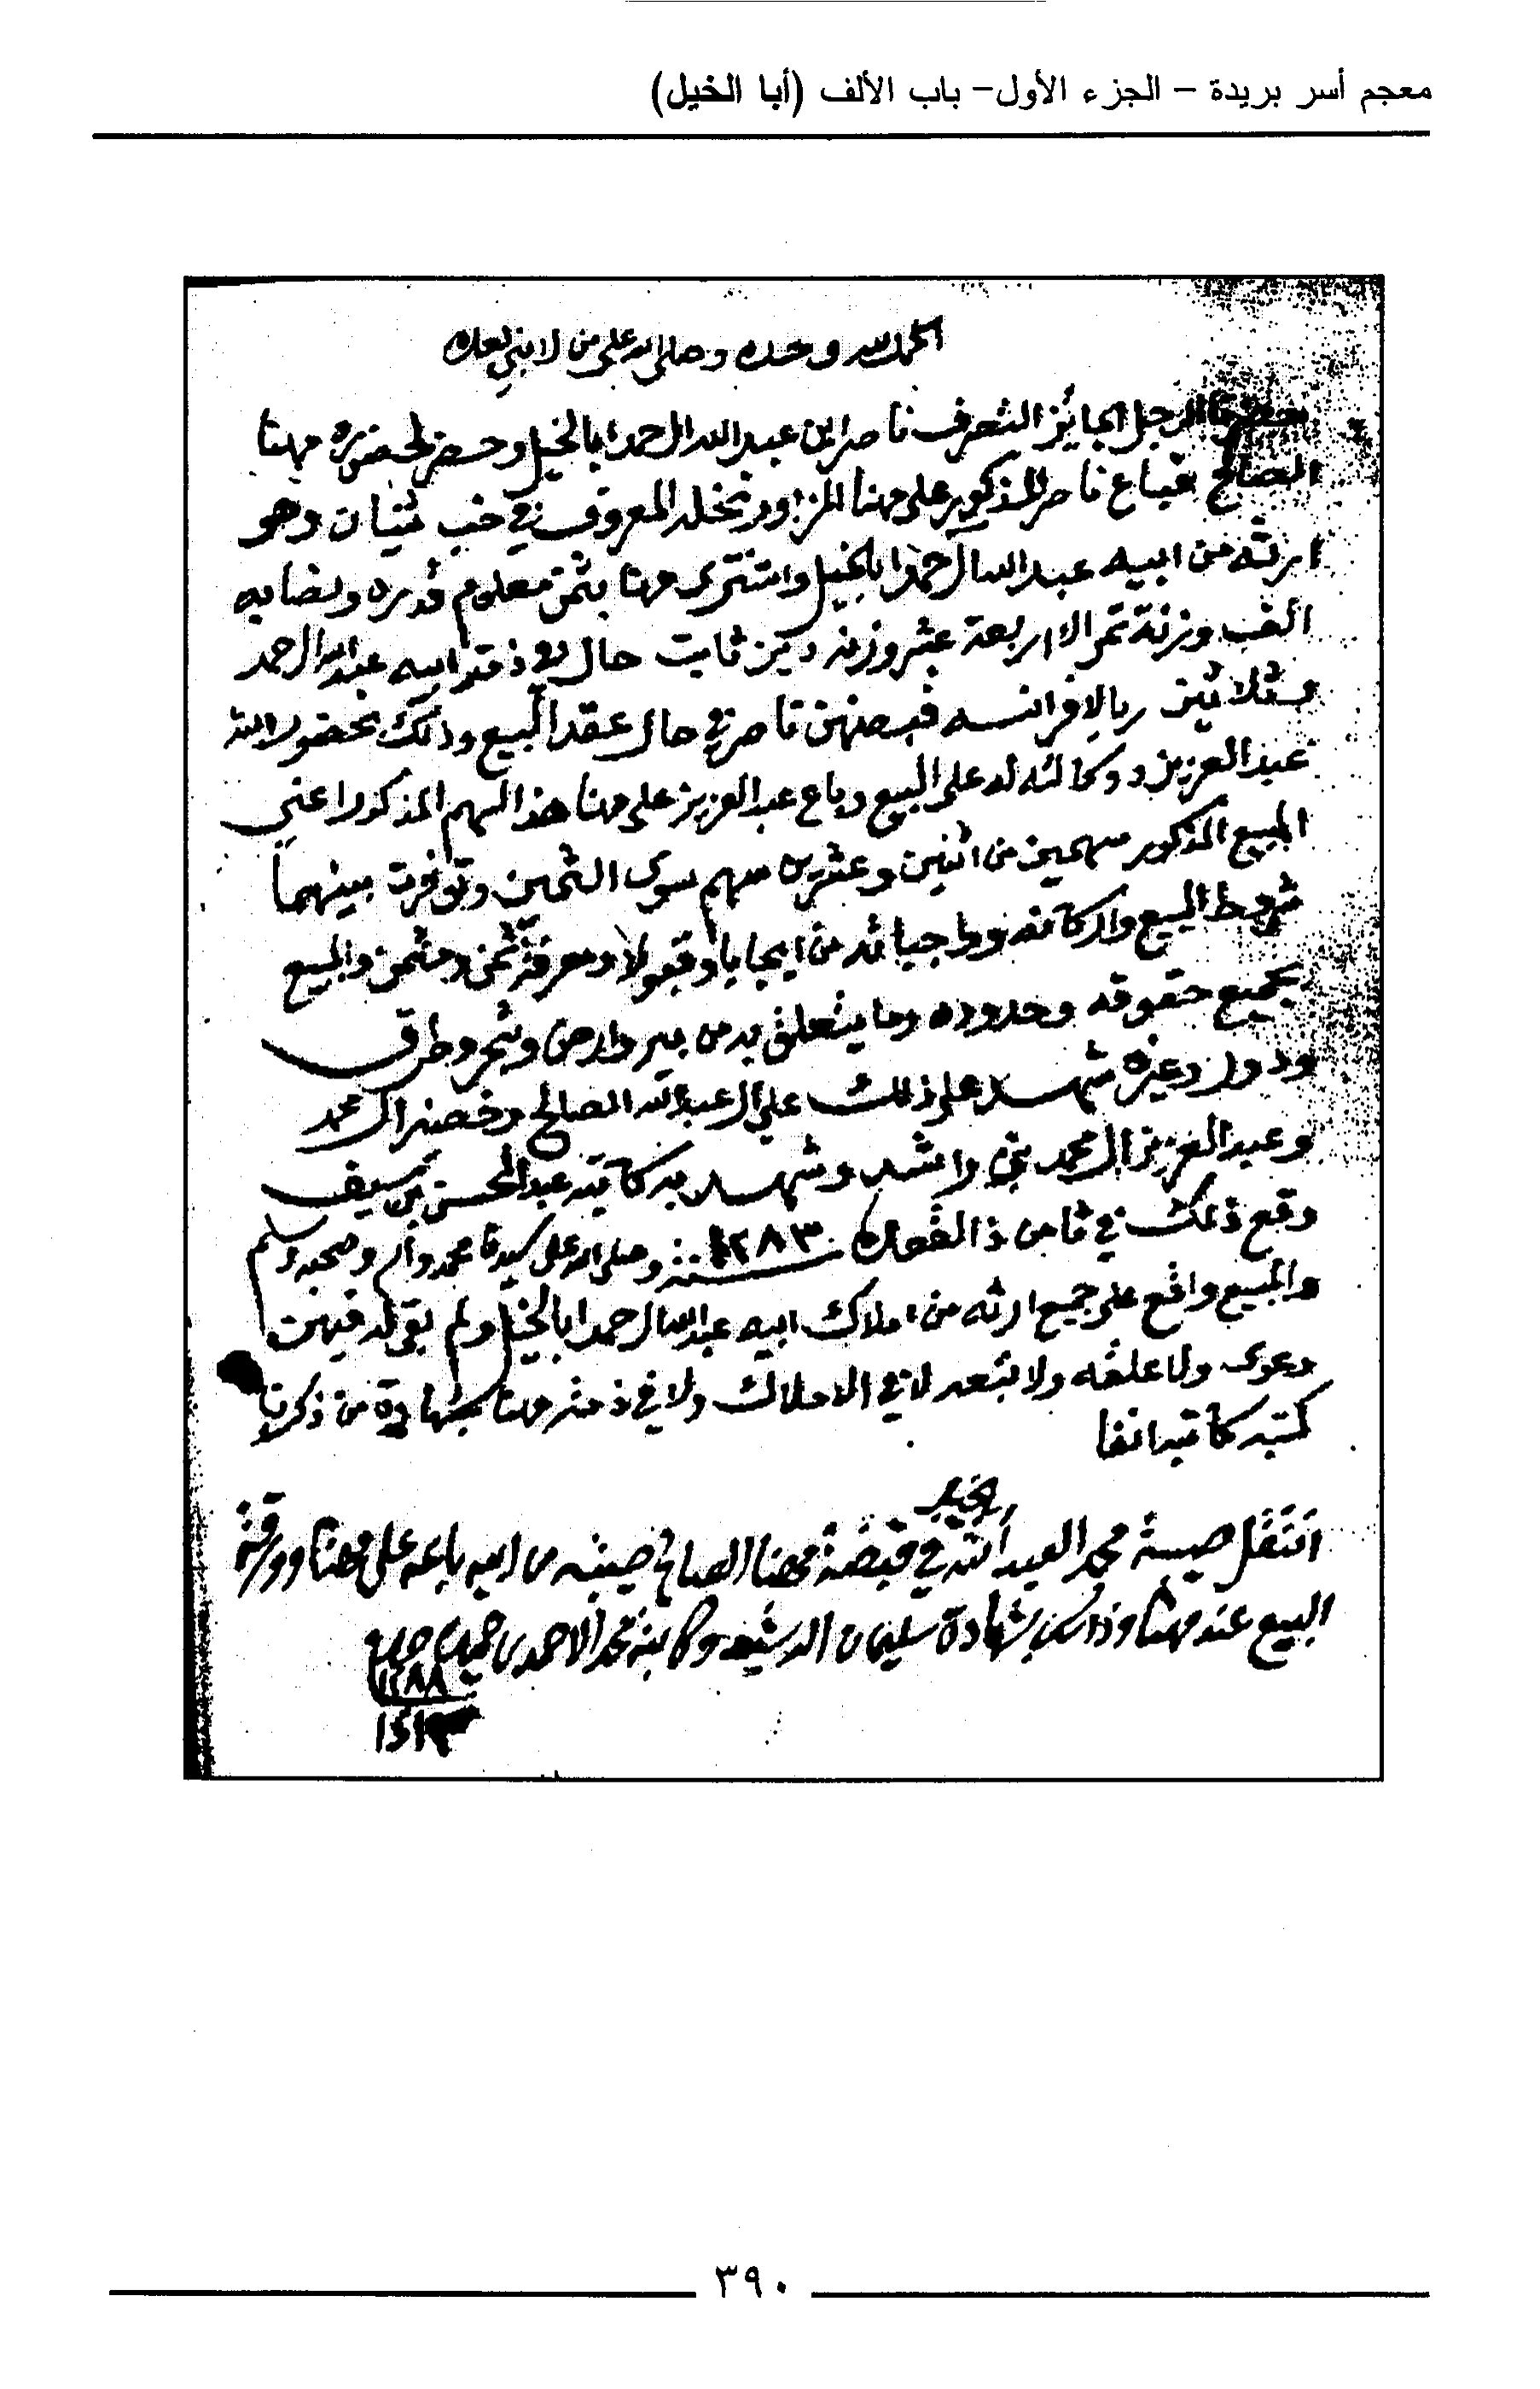 معجم أسر بريدة - الجزء الأول- باب الألف (أبا الخيل)
الحمد لله وحده وصلى الله على من لا نبي بعده
الرجل الجايز التصرف ناصر ابن عبدالله الحمد ابا الخيل وحضر لحضوره مهنا
الصالح فباع ناصر المذكور على مهنا المزبور نخله المعروف في خب ثنيان وهو
ارثه من ابيه عبدالله الحمد ابا الخيل واشترى مهنا بثمن معلوم قدره ونصابه
ألف وزنة تمر الا اربعة عشر وزنه دين ثابت حال في ذمة ابيه عبدالله الحمد
وثلاثين ريال افرانسه قبضهن ناصر في حال عقد البيع وذلك بحضور
عبدالعزيز ووكالته له على البيع وباع عبدالعزيز على مهنا هذا السهم المذكور اعني
المبيع المذكور سهمين من اثنين وعشرين سهم سوى الثمين وتوفرت بينهما
شروط البيع واركانه وواجباته من ايجابا وقبولا ومعرفة ثمن ومثمن والمبيع
بجميع حقوقه وحدوده وما يتعلق به من بير وارض وشجر وطرق
ودور وغيره شهد على ذلك علي آل عبدالله الصالح وخضير ال محمد
وعبدالعزيز ال محمد بن راشد وشهد به كاتبه عبدالمحسن بن سيف
وقع ذلك في ثامن ذا القعده سنة ١٢٨٣ وصلى الله على سيدنا محمد وآله وصحبه وسلم
والمبيع واقع على جميع ارثه من املاك ابيه عبدالله الحمد ابا الخيل ولم بقى له فيهن
دعوى ولا علقه ولا تبعه لا في الاملاك ولا في ذمة مهنا بشهادة من ذكرنا
كتبه كاتبه انفا
انتقل صيبة محمد العبدالله في قبضة مهنا الصالح صيبته من ابيه باعه على مهنا وورقة
البيع عند مهنا وذلك بشهادة سليمان الرشيد وكاتبه محمد الاحمد بن حميدان
٣٩٠